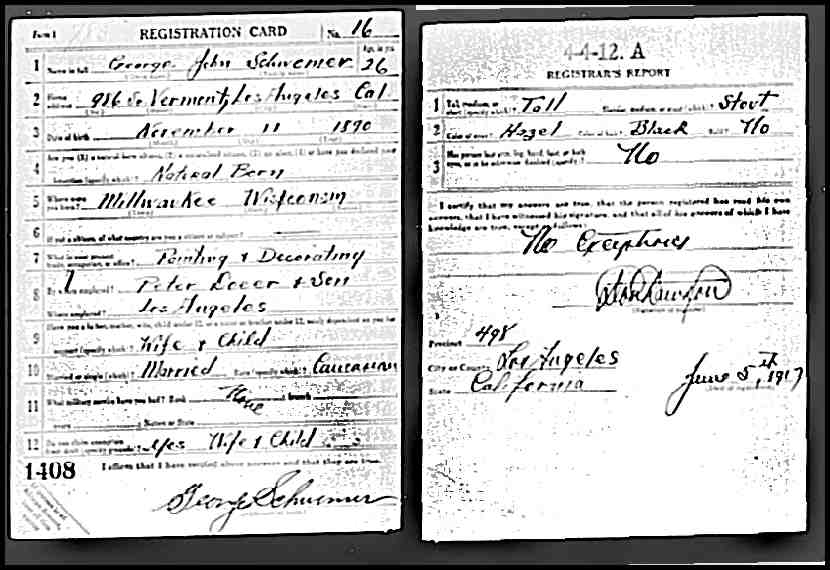 Form 1 REGISTRATION CARD No. 16
1 Name in full George John Schwemer Age, in yrs. 26
2 Home address 986 So. Vermont, Los Angeles Cal
3 Date of birth November 11 1890
4 Are you (1) a natural born citizen, (2) a naturalized citizen, (3) an alien, (4) or have you declared your
intention (specify which)? Natural Born
5 Where were you born? Millwaukee Wisconsin
6 If not a citizen, of what country are you a citizen or subject?
7 What is your present trade, occupation, or office? Painting & Decorating
8 By whom employed? Peter & Son
Where employed? Los Angeles
9 Have you a father, mother, wife, child under 12, or a sister or brother under 12, solely dependent on you for
support (specify which)? Wife & Child
10 Married or single (which)? Married Race (specify which)? Caucasian
11 What military service have you had? Rank None branch
years Nation or State
12 Do you claim exemption from draft (specify grounds)? Yes Wife & Child
1408 I affirm that I have verified above answers and that they are true.
George Schwemer
4-4-12. A
REGISTRAR'S REPORT
1 Tall, medium, or short (specify which)? Tall Slender, medium, or stout (which)? Stout
2 Color of eyes? Hazel Color of hair? Black Bald? No
3 Has person lost arm, leg, hand, foot, or both eyes, or is he otherwise disabled (specify)? No
I certify that my answers are true, that the person registered has read his own
answers, that I have witnessed his signature, and that all of his answers of which I have
knowledge are true, except as follows:
No Exceptions
Precinct 498
City or County Los Angeles
State California June 5th, 1917